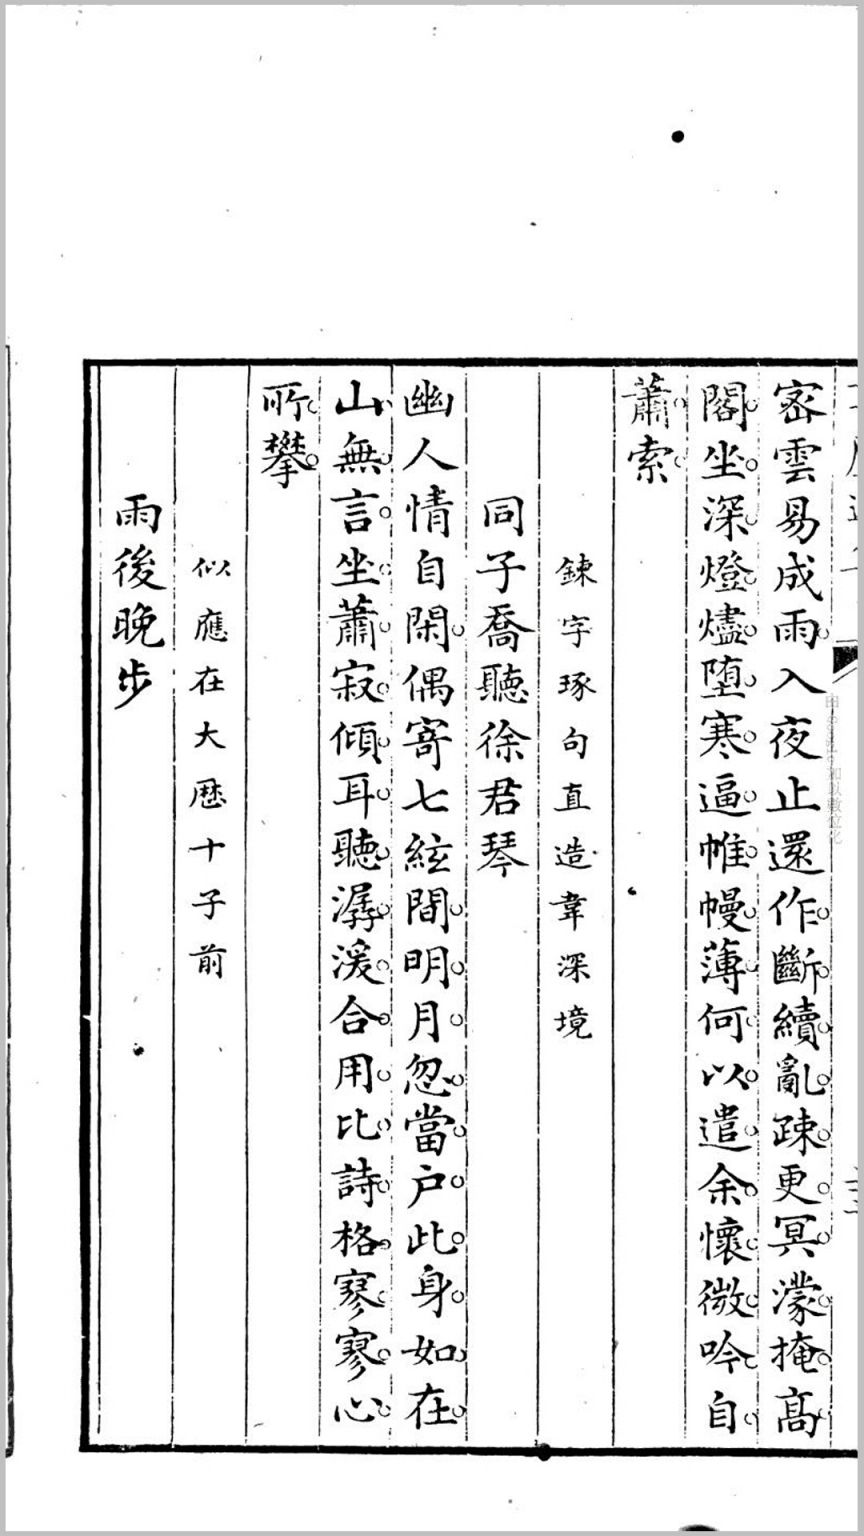 密雲易成雨入夜止還作斷續亂疎更冥濛掩高
閣坐深燈燼堕寒逼帷幔薄何以遣余懷微吟自
蕭索
鍊字琢句直造韋深境
同子喬聽徐君琴
幽人情自閑偶寄七絃間明月忽當户此身如在
山無言坐蕭寂傾耳聽潺湲合用比詩格寥寥心
所攀
似應在大厯十子前
雨後晚步